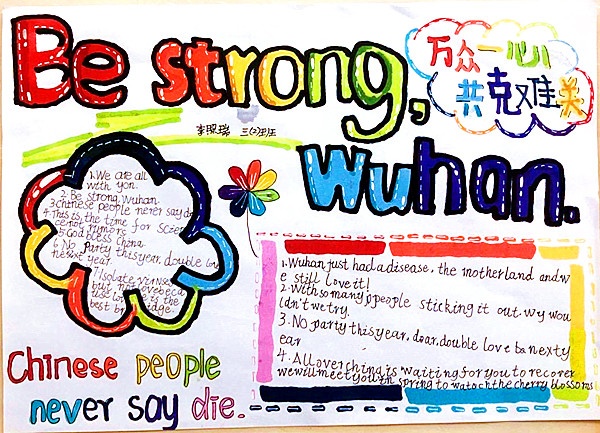 Be strong,
Wuhan.
万众一心
共克难关
李照瑞 三(2)班
1. We are all
with yon.
2. Be strong, Wuhan.
3 chinese people never say d
4. This is the time for scie
ce not rumors
5. God bless China
6. No party this year, double lov
next year.
7 Isolate virus
but not love beca
use love is the
best bridge.
1. Wuhan just had a disease, the motherland and w
e still love it!
2. With so many people sticking it out. wy wou
ldn't we try.
3. No party this year, dear, double love ba nexty
ear
4. All over china is waiting for you to recover
we will meet you in spring to watoch the cherry blossoms
Chinese people
never say die.